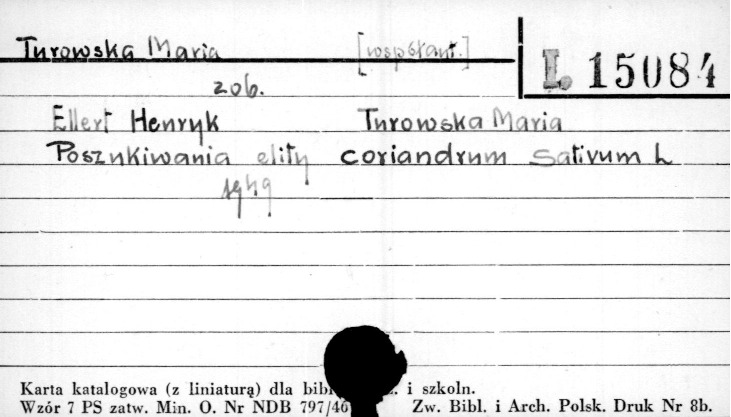 Turowska Maria [współaut.]
I. 15084
zob.
Ellert Henryk Turowska Maria
Poszukiwania elity coriandrum sativum L
1949
Karta katalogowa (z liniaturą) dla i szkoln.
Wzór 7 PS zatw. Min. O. Nr NDB 797/46 Zw. Bibl. i Arch. Polsk. Druk Nr 8b.